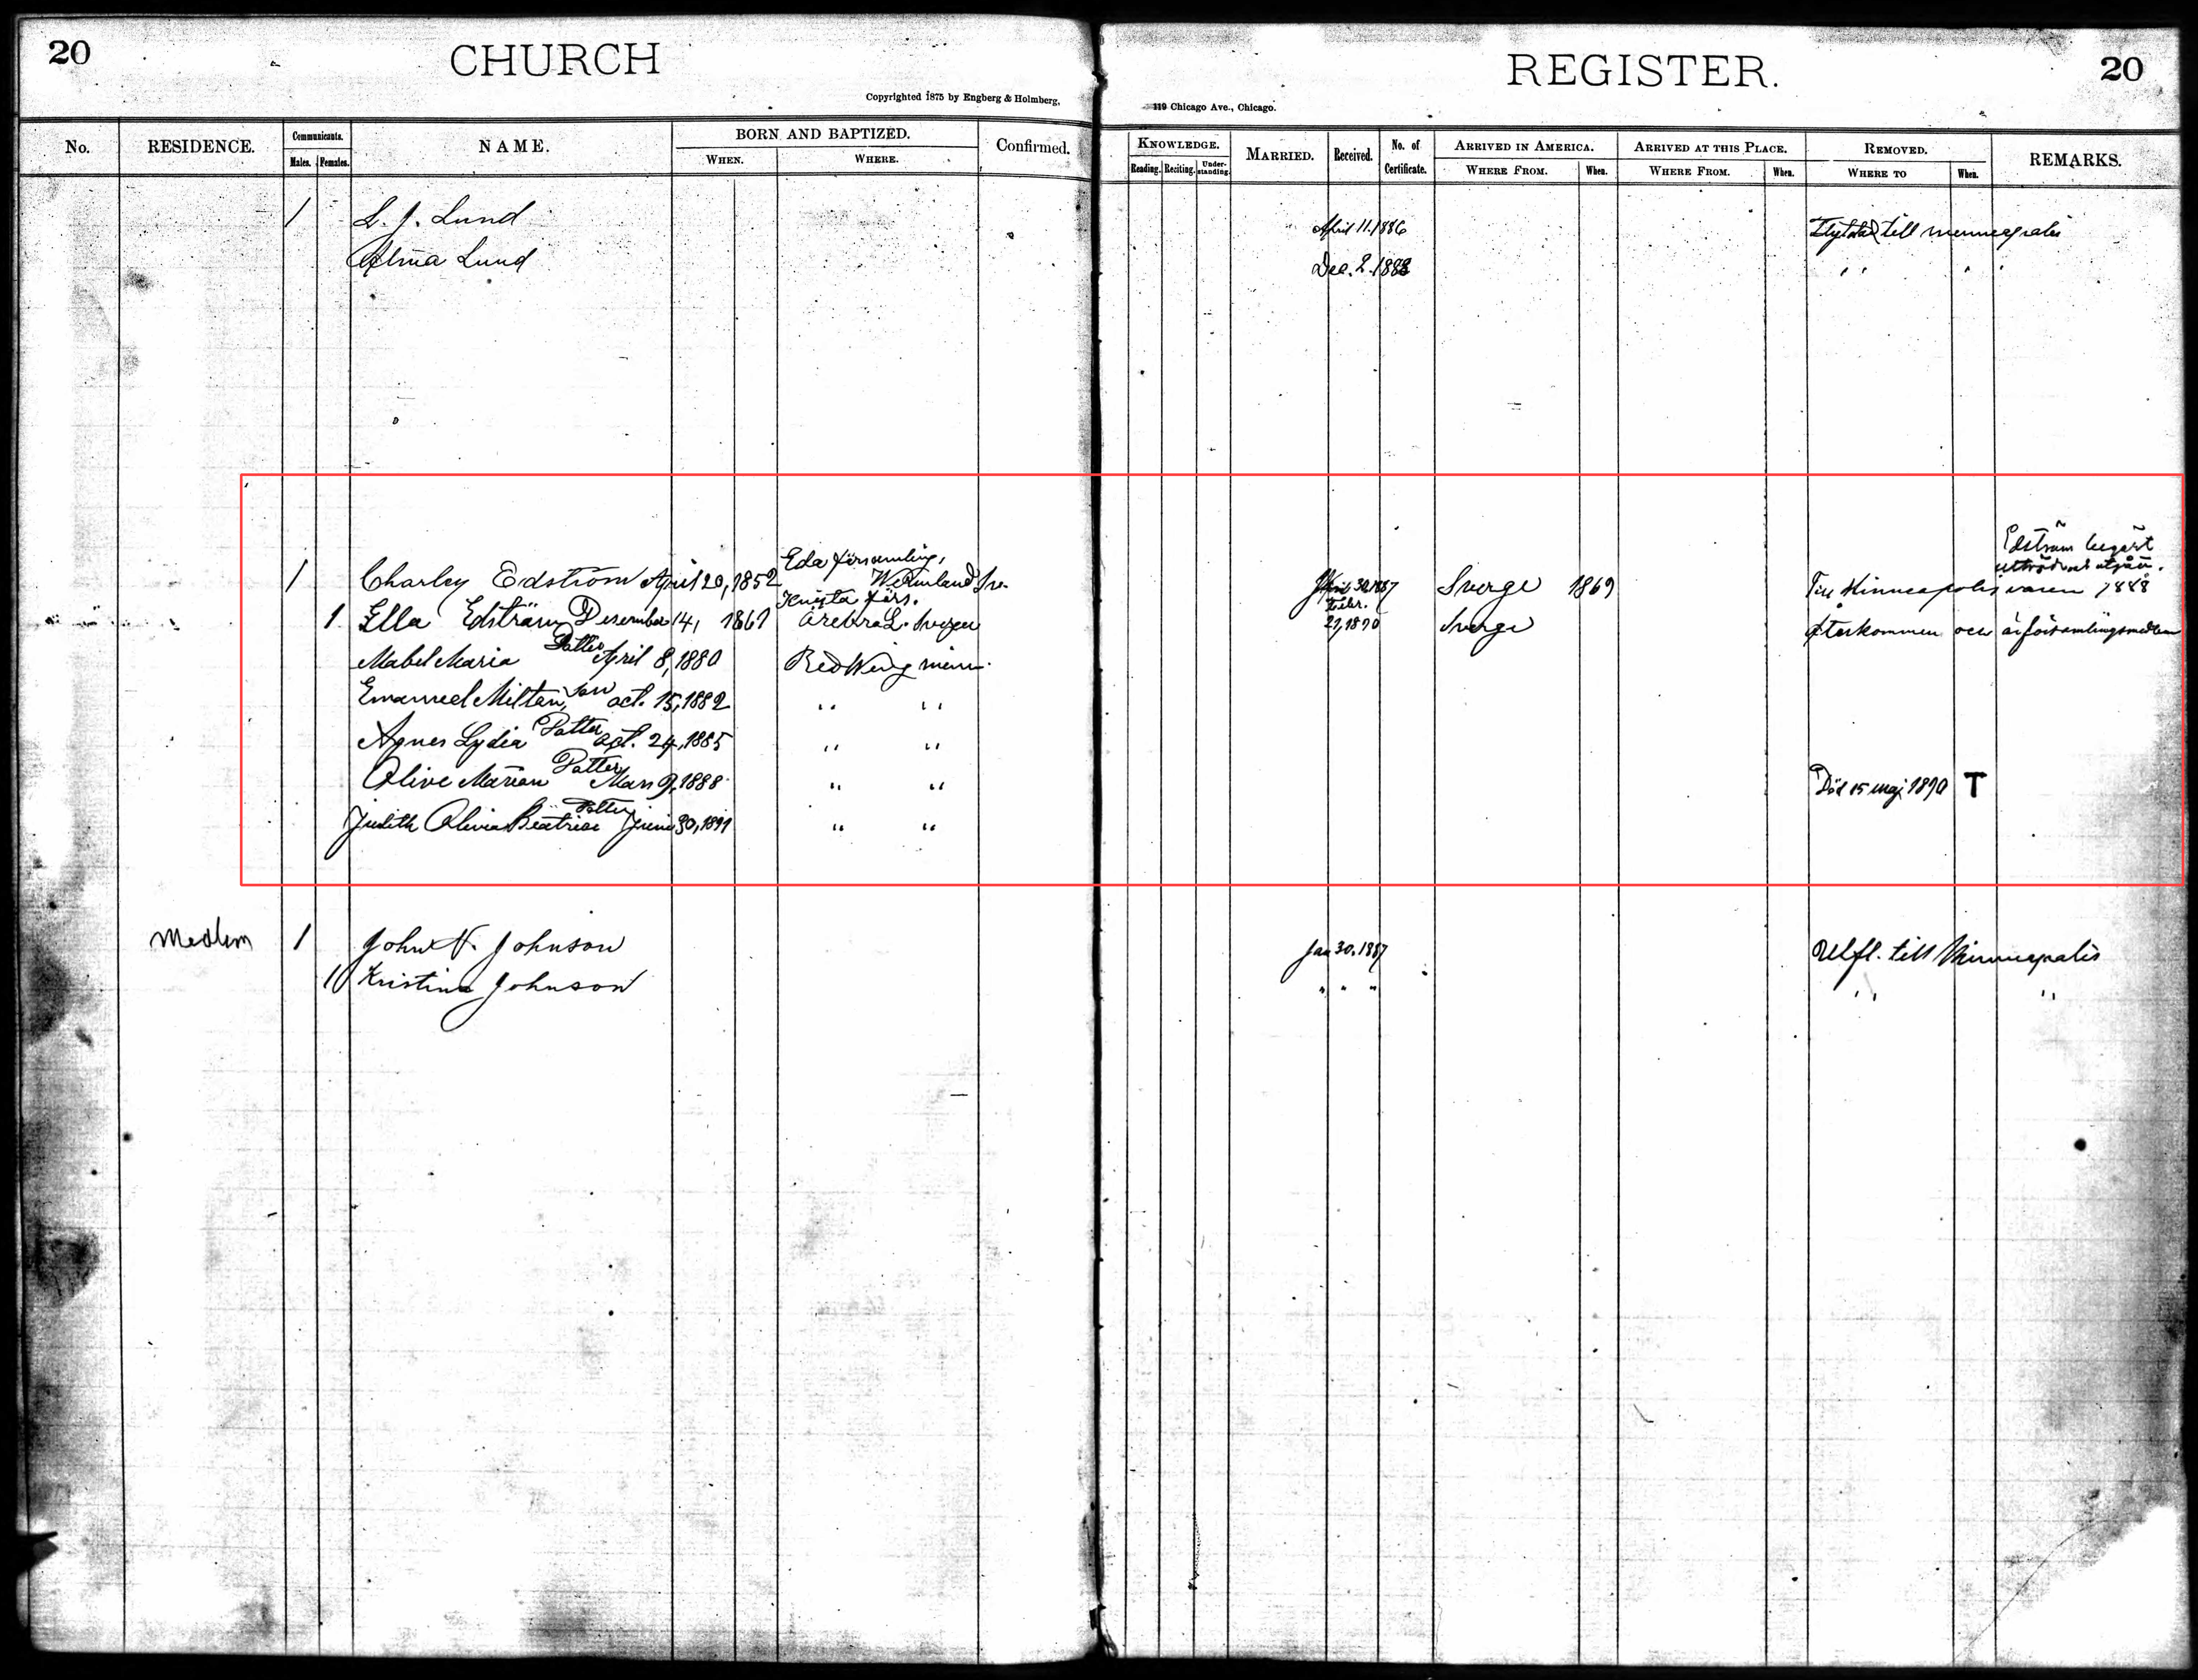 20 CHURCH REGISTER. 20
Copyrighted 1875 by Engberg & Holmberg, 119 Chicago Ave., Chicago.
No. RESIDENCE. Communicants. NAME. BORN AND BAPTIZED. Confirmed. KNOWLEDGE. MARRIED. Received. No. of Certificate. ARRIVED IN AMERICA. ARRIVED AT THIS PLACE. REMOVED. REMARKS.
Males. Females. WHEN. WHERE. Reading. Reciting. Understanding. WHERE FROM. When. WHERE FROM. When. WHERE TO When.
1 L. J. Lund April 11. 1886 till
Alma Lund Dec. 2. 1888 " "
Edström begärt
Eda församling, utträde
1 Charley Edström April 20, 1852 Wermland Sve. 1887 Sverge 1869 Till Minneapolis våren 1888
Knista förs. Febr.
1 Ella Edström Desember 14, 1861 Örebro L. Sverge 21, 1890 Sverge Återkommen och är församlingsmedlem
Mabel Maria Dotter April 8, 1880 Red Wing Minn.
Emanuel Milton, son oct. 15, 1882 " "
Agnes Lydia Dotter oct. 24, 1885 " "
Olive Marian Dotter Mars 9, 1888 " " Död 15 maj 1890 T
Judith Olivia Beatrice Dotter Juni 30, 1891 " "
Medlem 1 John N. Johnson Jan 30. 1887 Utfl. till Minneapolis
1 Kristina Johnson " " " " "